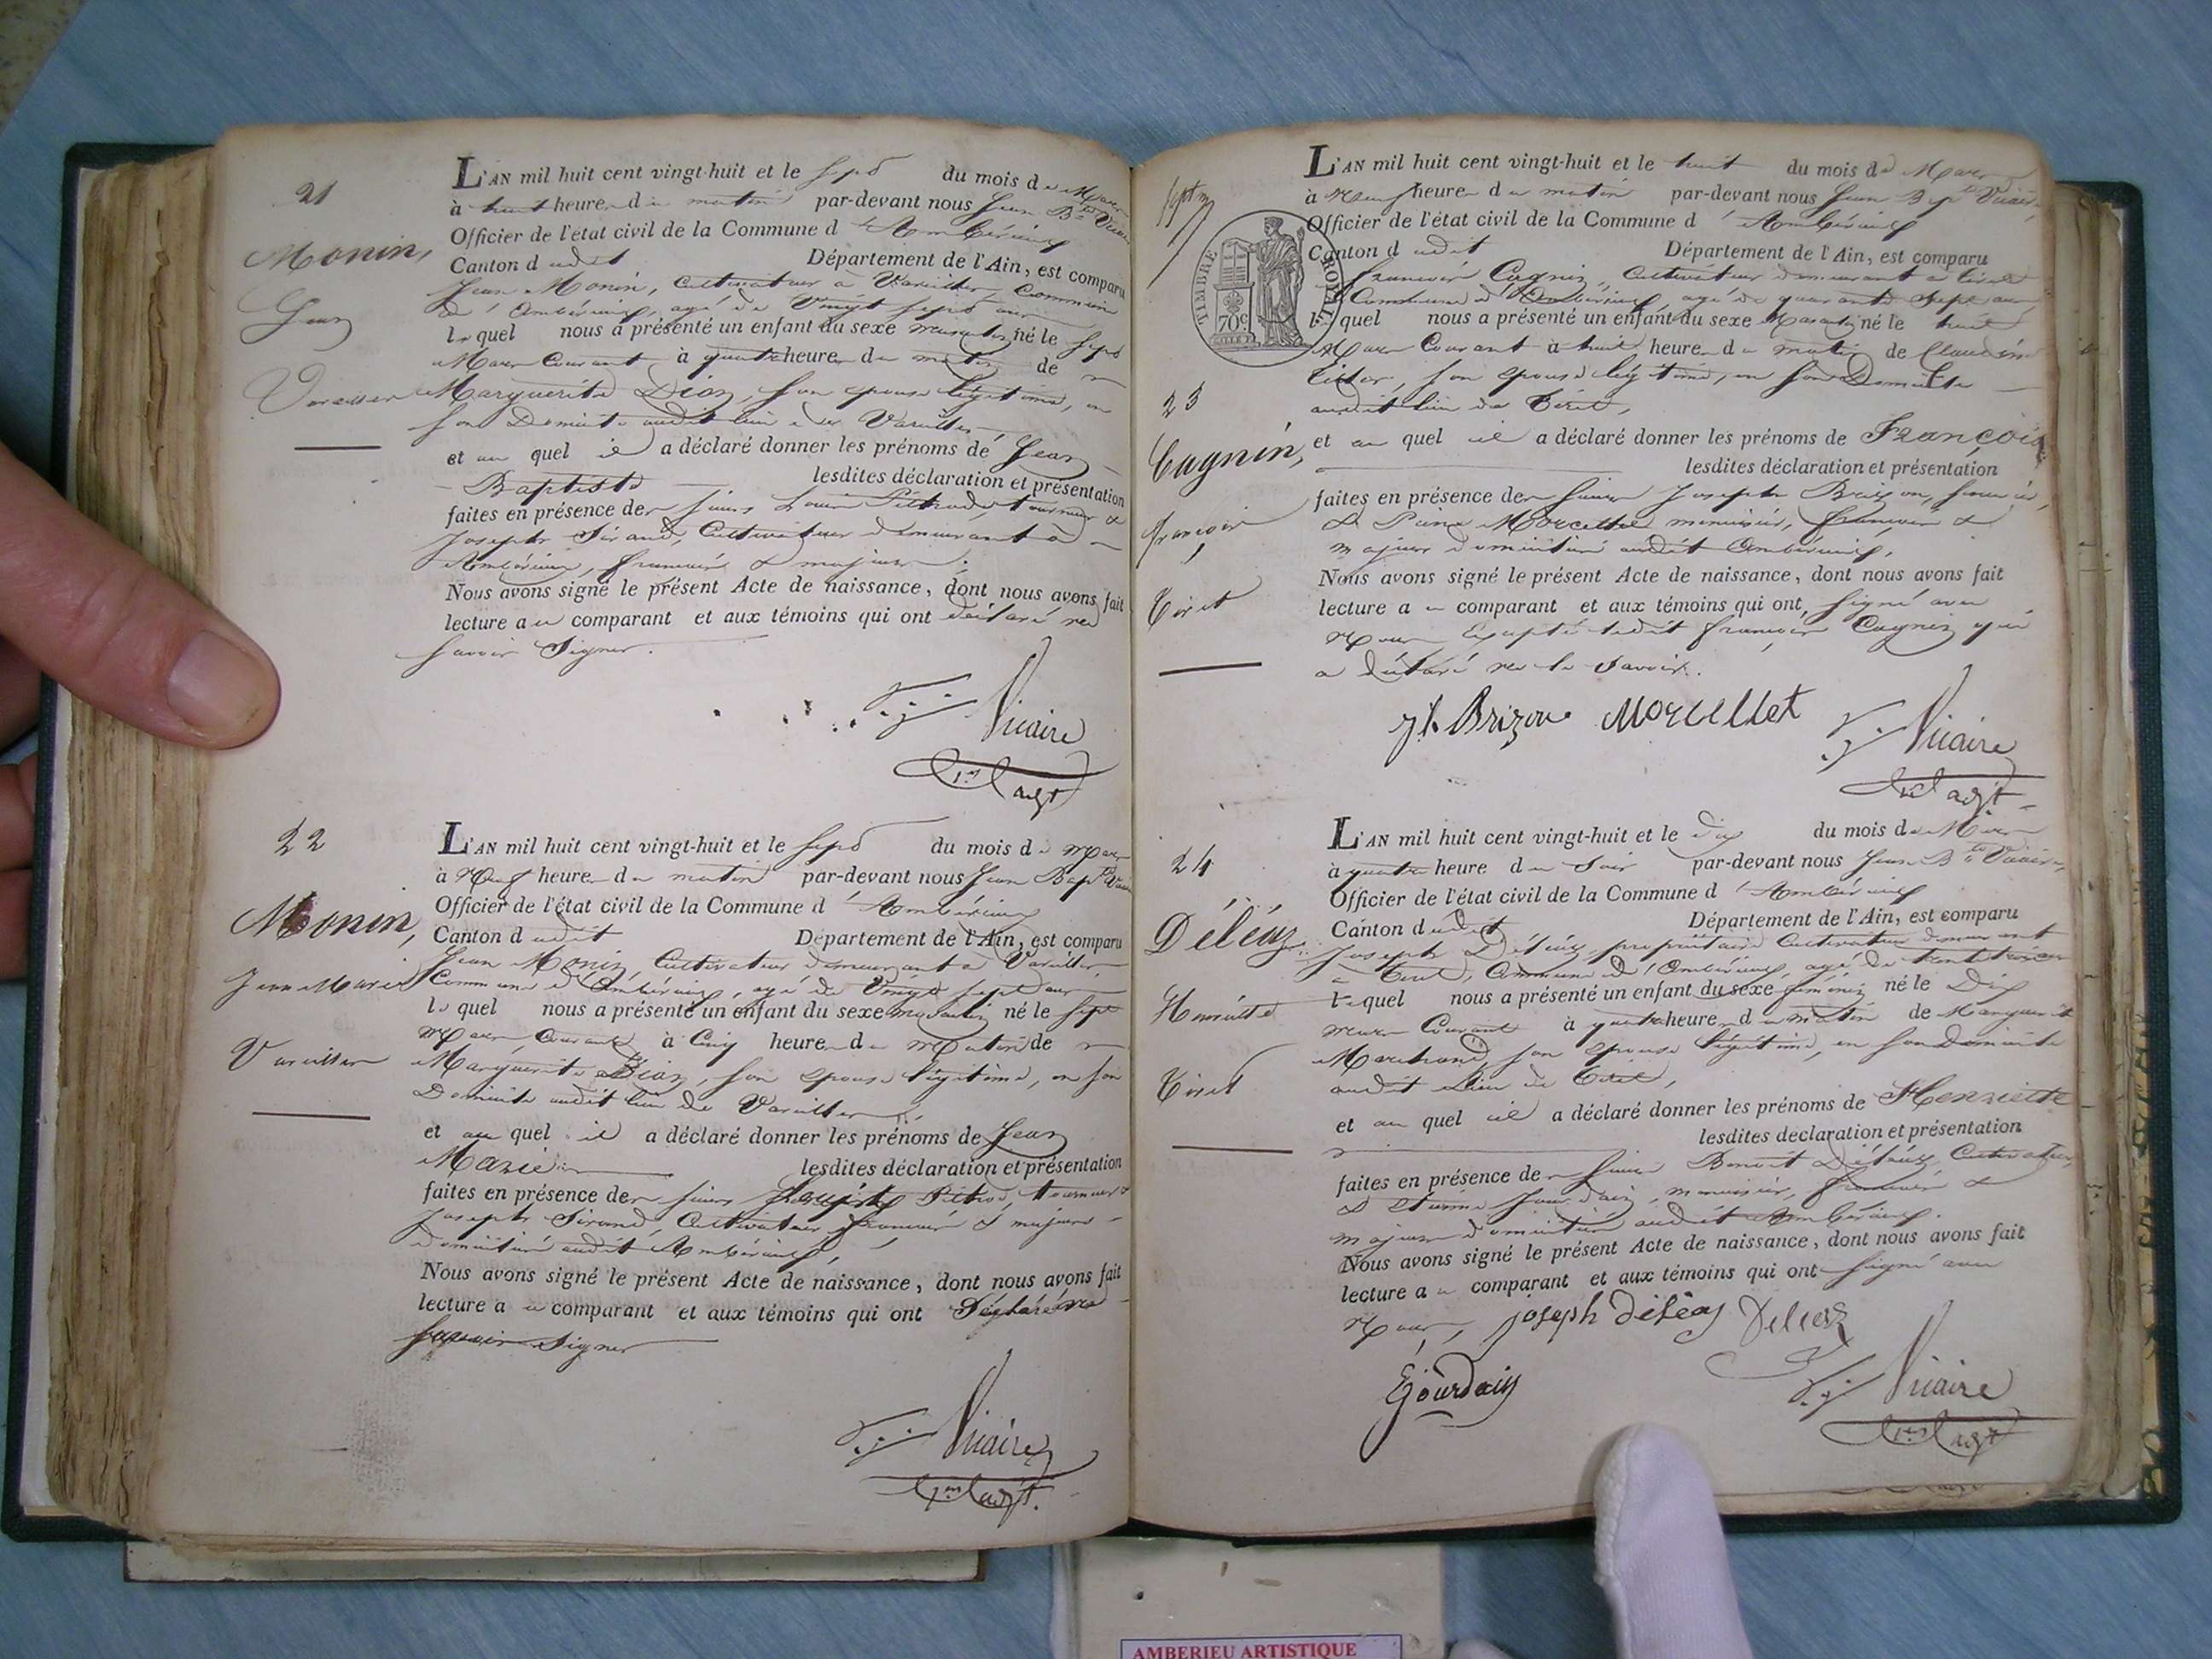 21
Monin,
Jean
Vareilles
L'AN mil huit cent vingt-huit et le sept du mois de Mars
à huit heure du matin par-devant nous Jean Bte Vicaire
Officier de l'état civil de la Commune d'Ambérieux
Canton dudit Département de l'Ain, est comparu
Jean Monin, Cultivateur à Vareilles, Commune
d'Ambérieux, agé de Vingt sept ans
lequel nous a présenté un enfant du sexe masculin né le sept
Mars Courant à quatre heure du matin de
Marguerite Dias, son epouse légitime, en
son Domicile audit lieu de Vareilles
et au quel il a déclaré donner les prénoms de Jean
Baptiste lesdites déclaration et présentation
faites en présence des sieurs Louis tourneur &
Joseph Sirand, Cultivateur demeurant à
Ambérieux, français & majeurs.
Nous avons signé le présent Acte de naissance, dont nous avons fait
lecture au comparant et aux témoins qui ont déclaré ne
savoir Signer.
Vicaire
adjt
22
Monin,
Jean Marie
Vareilles
L'AN mil huit cent vingt-huit et le sept du mois de Mars
à Neuf heure du matin par-devant nous Jean Bapte Vicaire
Officier de l'état civil de la Commune d'Ambérieux
Canton dudit Département de l'Ain, est comparu
Jean Monin, Cultivateur demeurant a Vareilles,
Commune d'Ambérieux, agé de Vingt sept ans
lequel nous a présenté un enfant du sexe masculin né le sept
Mars Courant à Cinq heure du Matin de
Marguerite Dias, son epouse légitime, en son
Domicile audit lieu de Vareilles
et au quel il a déclaré donner les prénoms de Jean
Marie lesdites déclaration et présentation
faites en présence des sieurs tourneur &
Joseph Sirand, Cultivateur français & majeurs
domiciliés audit Ambérieux,
Nous avons signé le présent Acte de naissance, dont nous avons fait
lecture au comparant et aux témoins qui ont Déclaré ne
savoir Signer
Vicaire
adjt.
TIMBRE ROYAL
70c
23
Cagnin,
françois
Tiret
L'AN mil huit cent vingt-huit et le huit du mois de Mars
à Neuf heure du matin par-devant nous Jean Bpte Vicaire,
Officier de l'état civil de la Commune d'Ambérieux
Canton dudit Département de l'Ain, est comparu
françois Cagnin, Cultivateur demeurant a tiret
Commune d'Ambérieux, agé de quarante sept ans
lequel nous a présenté un enfant du sexe Masculin né le huit
Mars Courant à huit heure du matin de Claudine
son epouse légitime, en son Domicile
audit lieu de Tiret,
et au quel il a déclaré donner les prénoms de François
lesdites déclaration et présentation
faites en présence des sieurs Joseph Brizon,
& Morcellet menuisier, français &
majeurs domiciliés audit Ambérieux.
Nous avons signé le présent Acte de naissance, dont nous avons fait
lecture au comparant et aux témoins qui ont, signé avec
Nous Excepté ledit françois Cagnin qui
a déclaré ne le Savoir.
Brizon Morcellet
Vicaire
adjt
24
Déléaz
Henriette
Tiret
L'AN mil huit cent vingt-huit et le dix du mois de Mars
à quatre heure du Soir par-devant nous Jean Bte Vicaire,
Officier de l'état civil de la Commune d'Ambérieux
Canton dudit Département de l'Ain, est comparu
Joseph Déléaz propriétaire Cultivateur demeurant
à Tiret, Commune d'Ambérieux, agé de
lequel nous a présenté un enfant du sexe féminin né le Dix
Mars Courant à quatre heure du matin de Marguerite
Marchand, son epouse légitime, en son Domicile
audit Lieu de Tiret,
et au quel il a déclaré donner les prénoms de Henriette
lesdites déclaration et présentation
faites en présence des sieurs Benoit Déléaz, Cultivateur,
& Etienne Jourdain, menuisier, français &
majeurs domiciliés audit Ambérieux.
Nous avons signé le présent Acte de naissance, dont nous avons fait
lecture au comparant et aux témoins qui ont signé avec
Nous, joseph déléas Deleaz
Ejourdain
Vicaire
adjt
AMBERIEU ARTISTIQUE